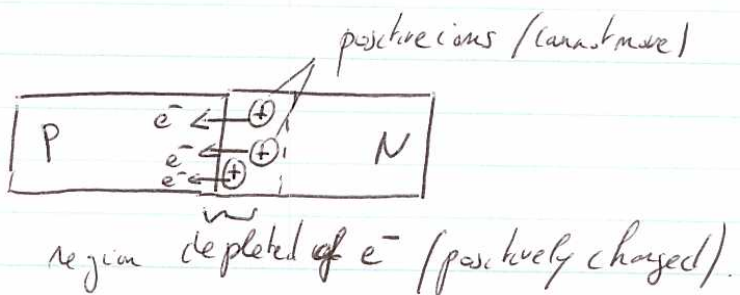 positive ions (cannot move)
e⁻ +
P e⁻ + N
e⁻ +
region depleted of e⁻ (positively charged).